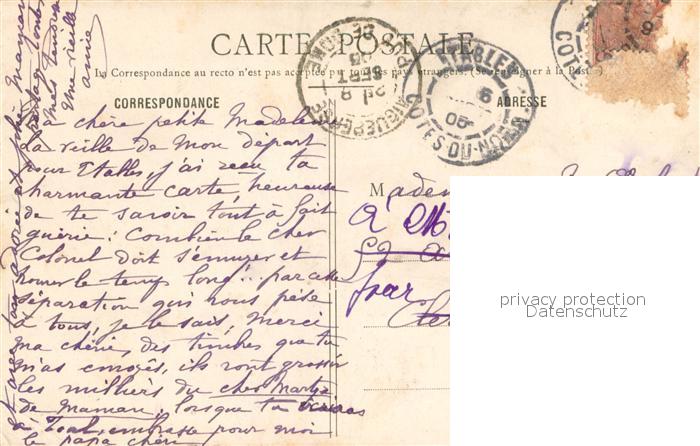 CARTE POSTALE
La Correspondance au recto n'est pas acceptée par tous les pays étrangers. (Se renseigner à la Poste)
CORRESPONDANCE
ADRESSE
Ma chère petite Madeleine
La veille de mon départ
pour Etables, j'ai reçu ta
charmante carte, heureuse
de te savoir tout à fait
guérie! Combien le cher
Colonel doit s'ennuyer et
trouver le temps long!.. par cette
séparation qui nous pèse
à tous, je le sais, merci
ma chérie, des timbres que tu
m'as envoyés, ils vont grossir
les milliers du cher
de Maman, lorsque tu
à Toul, embrasse pour moi
le papa chéri
et avec ton adorée et
Une vieille
amie
Madem
A
privacy protection
Datenschutz
ETABLES
COTES-DU-NORD
8
SEPT
05